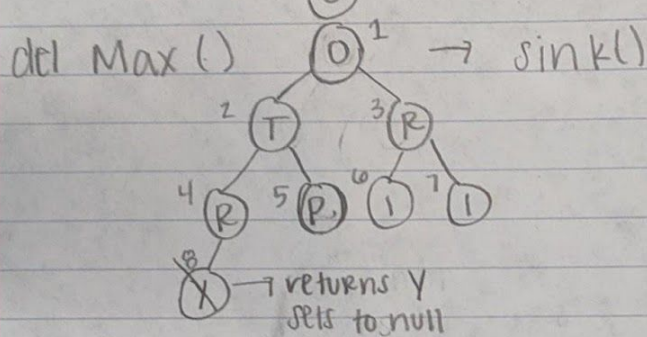 del Max() → sink()
O 1
2 T 3 R
4 R 5 P 6 I 7 I
8 Y → returns Y
sets to null